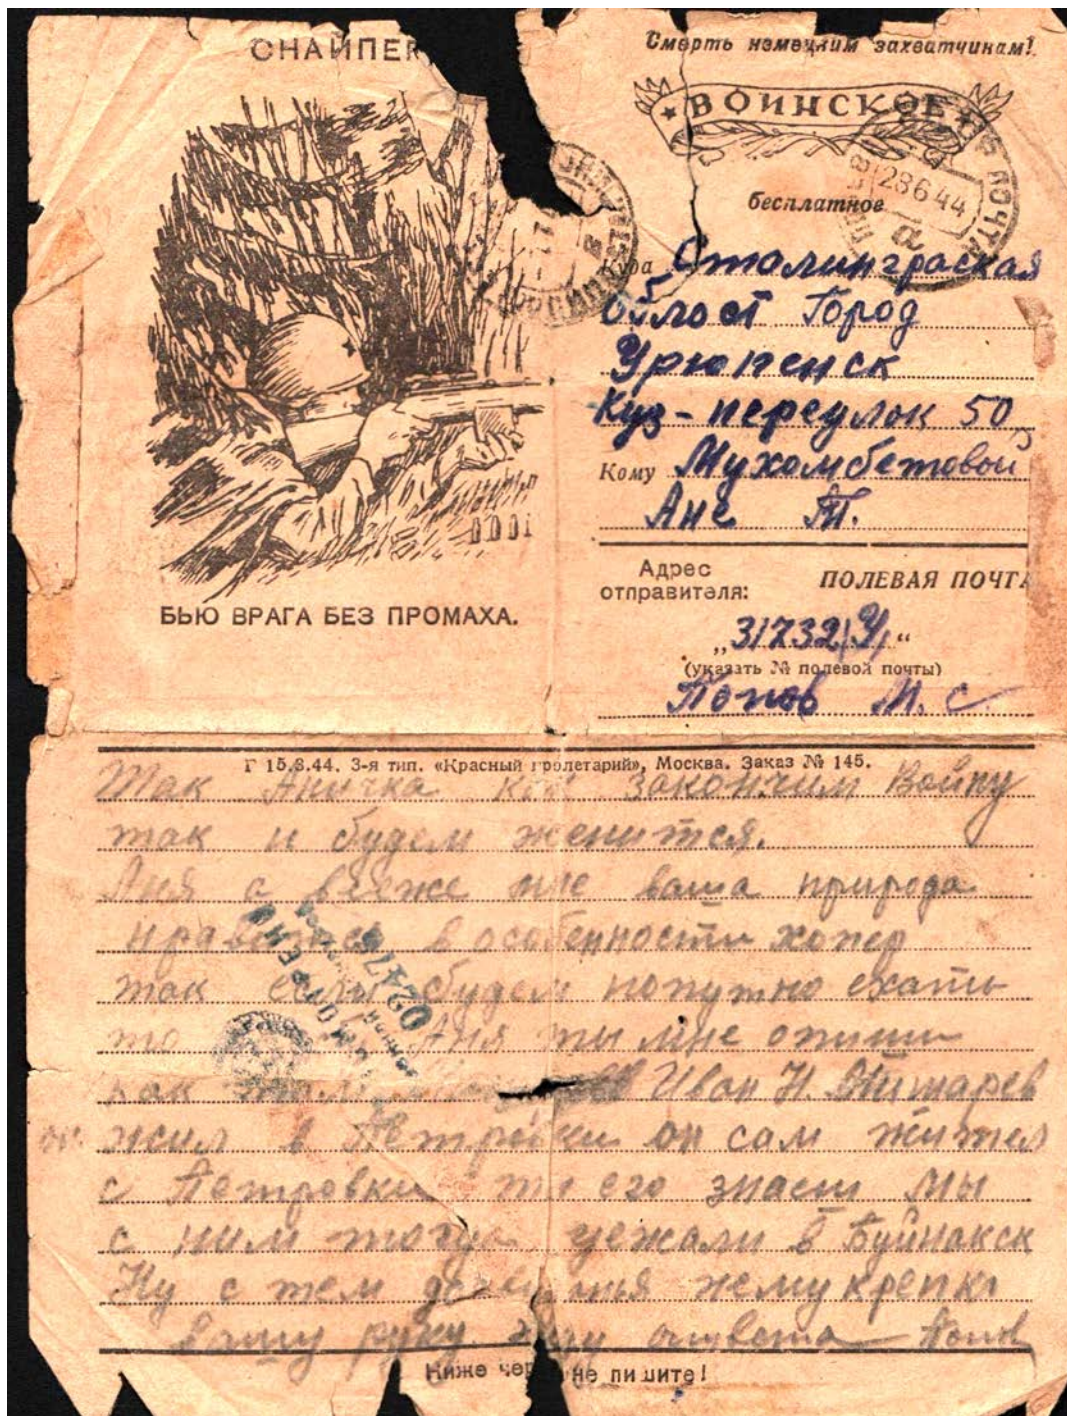 СНАЙПЕР
БЬЮ ВРАГА БЕЗ ПРОМАХА.
Смерть немецким захватчикам!
ВОИНСКОЕ
28 6 44
ПОЧТА
бесплатное
Куда Сталинграская
област Город
Урюпенск
Куз-переулок 50,
Кому Мухомбетовой
Ане Т.
Адрес
отправителя:
ПОЛЕВАЯ ПОЧТА
„31732/У“
(указать № полевой почты)
Попов М. С
Г 15.3.44. 3-я тип. «Красный пролетарий», Москва. Заказ № 145.
Так Аничка как закончим Войну
так и будем женится.
Аня а вееже мне ваша природа
нравится в особенности хопер
так если будем попутно ехать
то Аня ты мне опиши
как Иван Н.
жил в Петровки он сам жител
с Петровки ты его знаеш Мы
с ним тогда уежали в Буйнакск
Ну с тем досвиданья жему крепко
вашу руку жду ответа Попов
02476
Ниже черты не пишите!